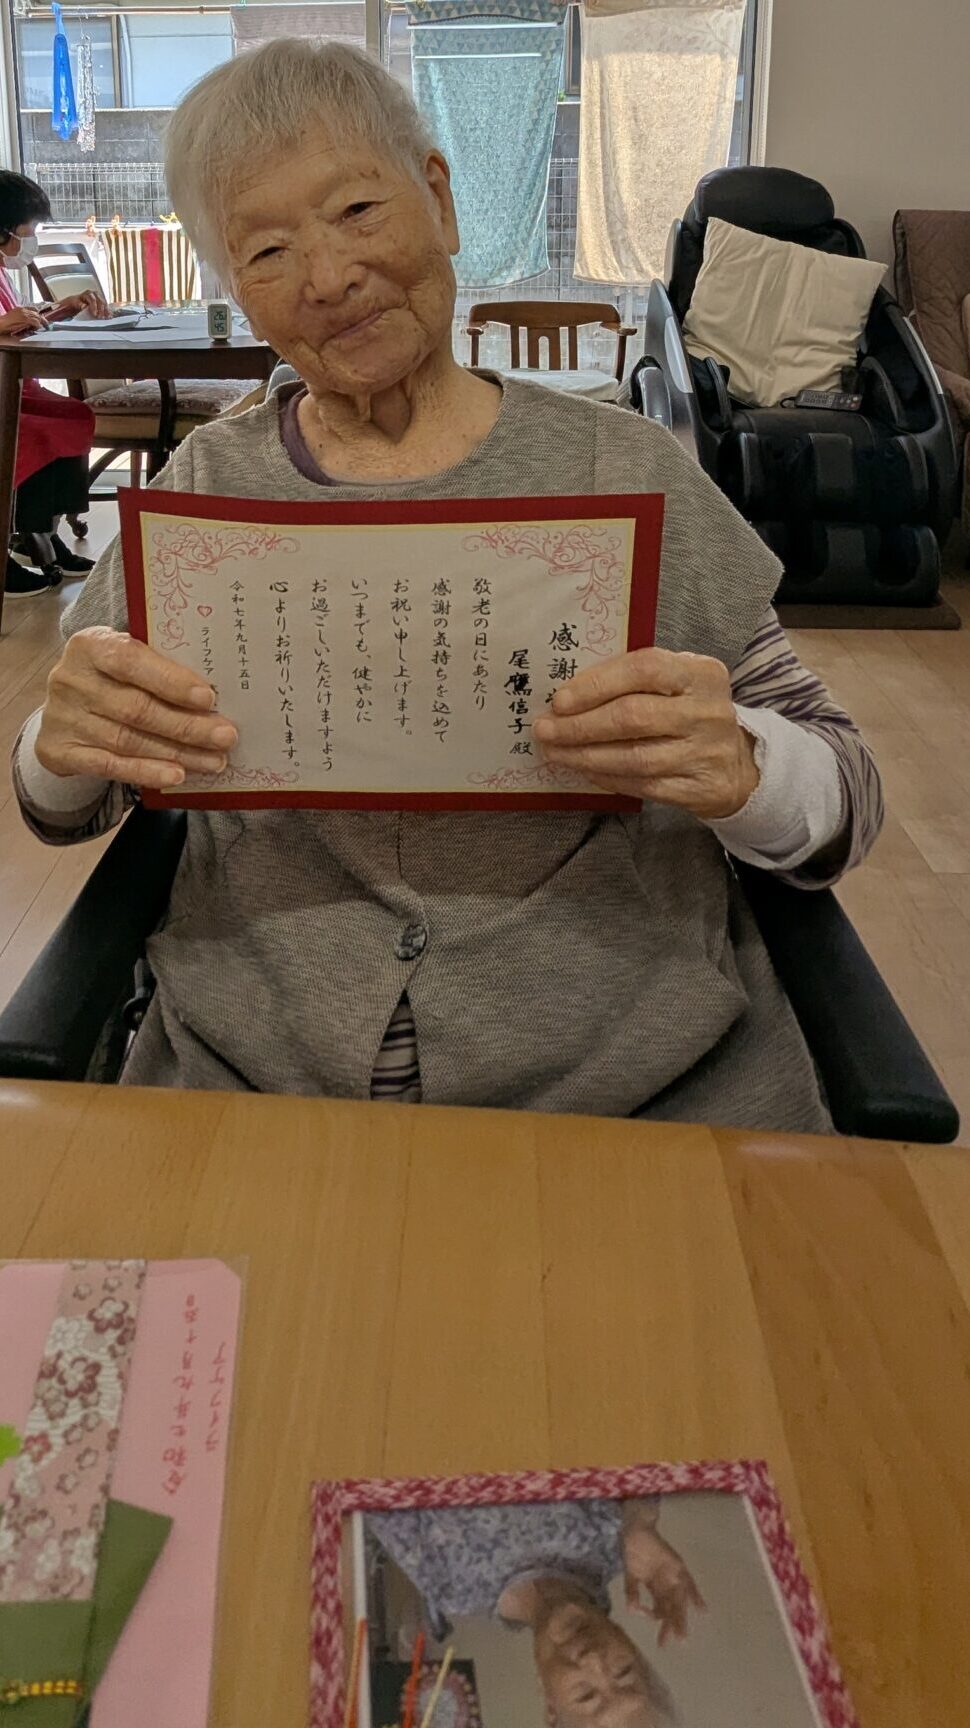 感謝
尾鷹信子 殿
敬老の日にあたり
感謝の気持ちを込めて
お祝い申し上げます。
いつまでも、健やかに
お過ごしいただけますよう
心よりお祈りいたします。
令和七年九月十五日
ライフケア
26
45
令和七年九月十五日
ライフケア